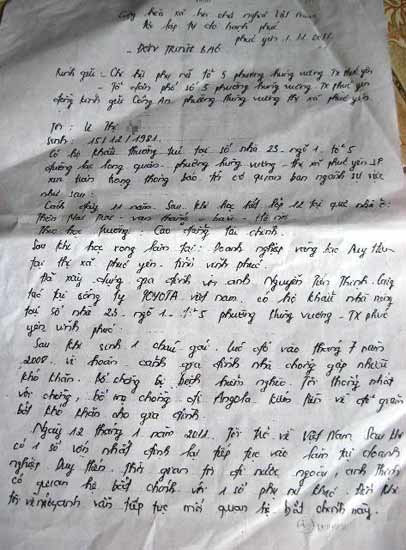 Cộng hòa xã hội chủ nghĩa Việt Nam
Độc lập tự do hạnh phúc
phúc yên 1.11.2011
- Đơn Trình Báo
Kính gửi - Chi hội phụ nữ tổ 5 phường hùng vương Tx phúc yên
- Tổ dân phố số 5 phường hùng vương. TX phúc yên
đồng kính gửi Công An phường hùng vương thị xã phúc yên
Tôi: Lê Thị
Sinh: 15/12/1981.
Có hộ khẩu thường trú tại số nhà 23 - ngõ 1 - tổ 5
đường lạc long quân. phường hùng vương - thị xã phúc yên
xin trân trọng thông báo tới cơ quan ban ngành sự việc
như sau:
Cách đây 11 năm. Sau khi học hết lớp 12 tại quê nhà ở:
Thôn
Theo học trường: Cao đẳng tài chính.
Sau khi học xong làm tại: Doanh nghiệp vàng bạc Duy Hiền
tại thị xã phúc yên. tỉnh vĩnh phúc.
Đã xây dựng gia đình với anh Nguyễn Tiến Thịnh. Công
tác tại công ty TOYOTA việt nam. có hộ khẩu nhà riêng
tại số nhà 23 - ngõ 1 - tổ 5 phường hùng vương - TX phúc
yên vĩnh phúc.
Sau khi sinh 1 cháu gái. lúc đó vào tháng 7 năm
2008. vì hoàn cảnh gia đình nhà chồng gặp nhiều
khó khăn. bố chồng bị bệnh hiểm nghèo. Tôi thống nhất
với chồng, bố mẹ chồng đi Angola kiếm tiền về để giảm
bớt khó khăn cho gia đình.
Ngày 12 tháng 1 năm 2011. Tôi trở về Việt Nam. Sau khi
có 1 số vốn nhất định lại tiếp tục vào làm tại doanh
nghiệp Duy Hiền. thời gian tôi đi nước ngoài, anh Thịnh
có quan hệ bất chính với 1 số phụ nữ khác. đến khi
tôi về anh vẫn tiếp tục mối quan hệ bất chính này.